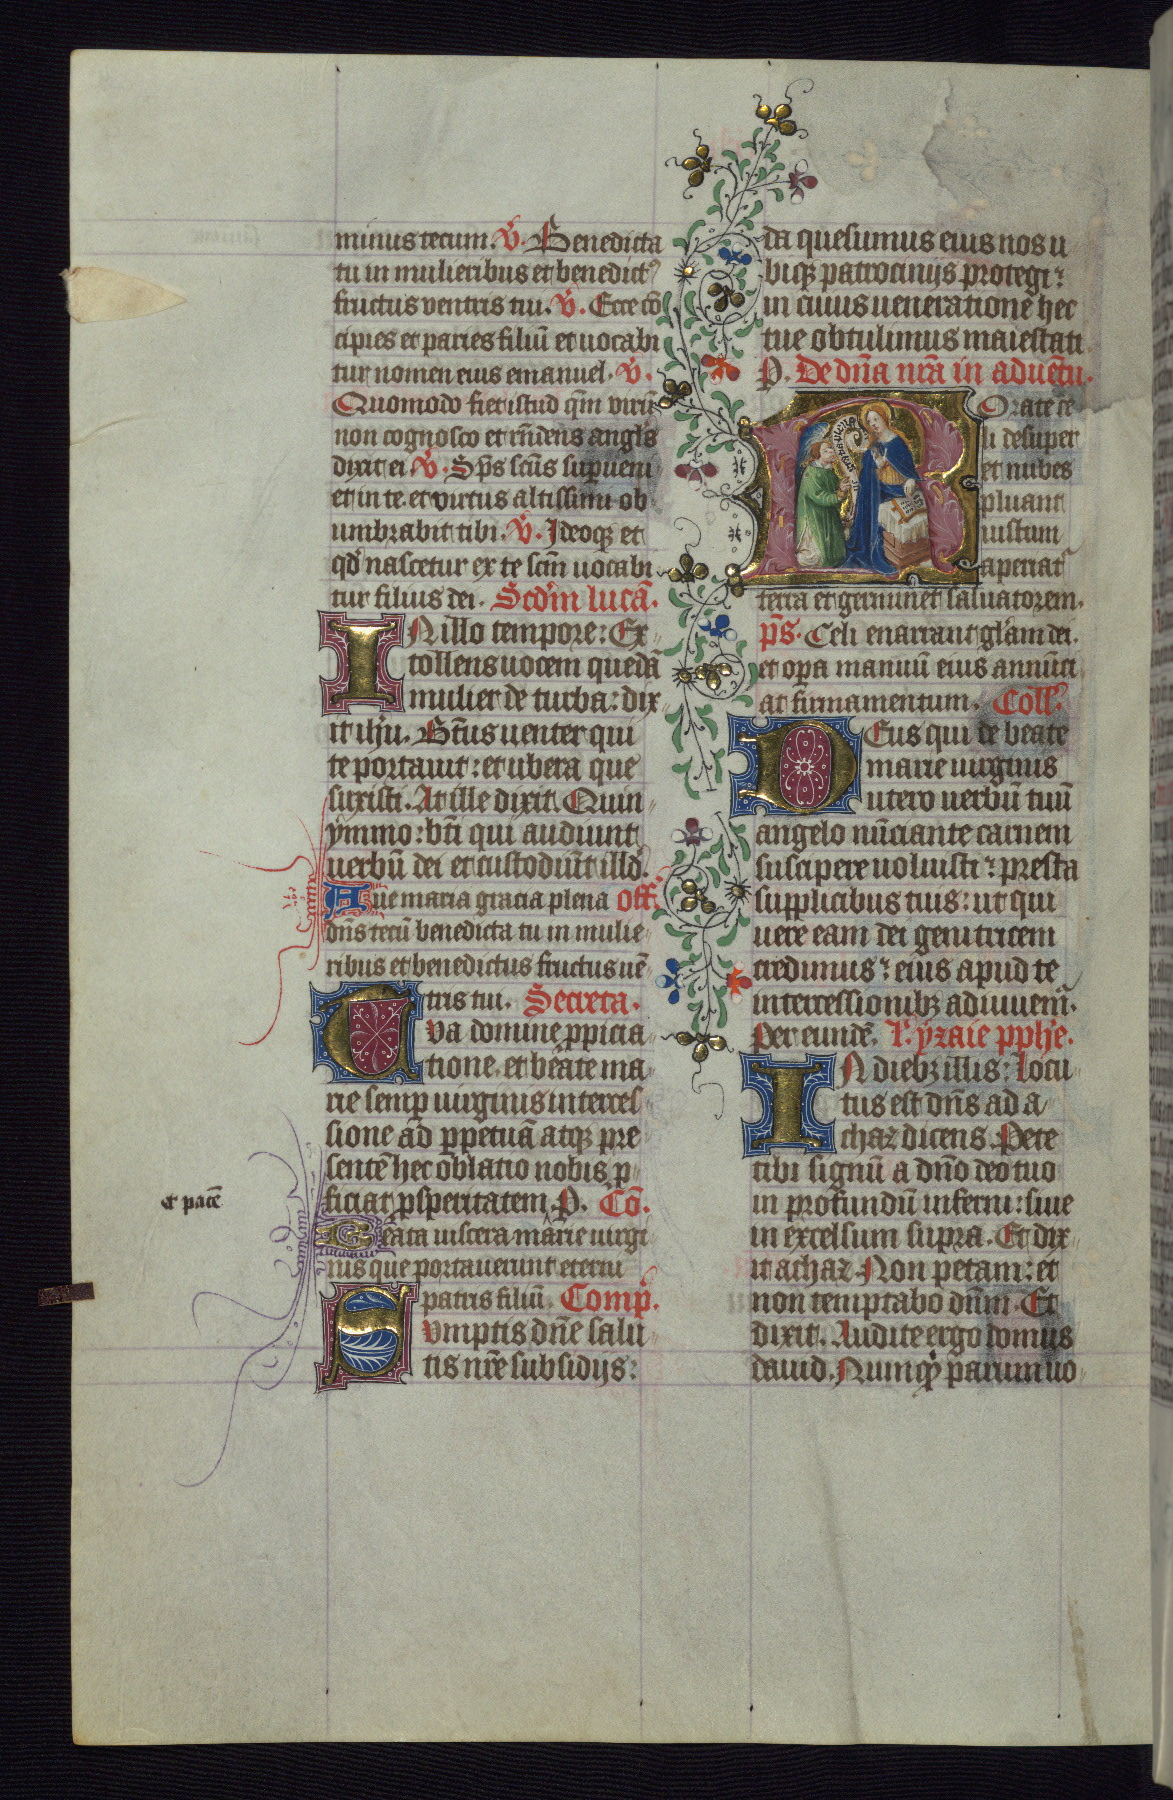 minus tecum. V̄. Benedicta
tu in mulieribus et benedict⁹
fructus ventris tui. V̄. Ecce cō
cipies et paries filiū et uocabi
tur nomen eius emanuel. V̄.
Quomodo fiet istud qm̄ virū
non cognosco et rn̄dens angl's
dixit ei V̄. Sp̄s scūs supueni
et in te. et virtus altissimi ob
umbrabit tibi. V̄. Ideoqꝫ et
qd' nascetur ex te scm̄ uocabi
tur filius dei. Scd'm lucā.
IN illo tempore: Ex
tollens uocem quedā
mulier de turba: dix
it ih'u. Bt̄us uenter qui
te portauit: et ubera que
suxisti. At ille dixit. Quin
ymmo: bt̄i qui audiunt
uerbū dei et custodiūt illd'.
Aue maria gracia plena Off.
dn̄s tecū benedicta tu in mulie
ribus et benedictus fructus uē
tris tui. Secreta.
TVa domine ꝓpicia
tione. et beate ma
rie semꝑ uirginis interces
sione ad ꝑpetuā atqꝫ pre
sentē hec oblatio nobis ꝓ
ficiat ꝓsperitatem. P. Cō.
et pacē
Beata uiscera marie uirgi
nis que portauerunt eterni
patris filiū. Comp̄.
SVmptis dn̄e salu
tis nr̄e subsidijs:
da quesumus eius nos u
biqꝫ patrocinijs protegi:
in cuius ueneratione hec
tue obtulimus maiestati
P. De dn̄a nr̄a in aduētu.
ROrate ce
li desuper
et nubes
pluant
iustum
aperiat'
terra et germinet saluatorem.
p̄s. Celi enarrant gl'am dei.
et opa manuū eius annūci
at firmamentum. Coll'.
DEus qui de beate
marie uirginis
utero uerbū tuū
angelo nūciante carnem
suscipere uoluisti: presta
supplicibus tuis: ut qui
uere eam dei genitricem
credimus: eius apud te
intercessionibꝫ adiuuem̄.
Per eundē. l'. yzaie pphē.
IN diebꝫ illis: Locu
tus est dn̄s ad a
chaz dicens. Pete
tibi signū a dn̄o deo tuo
in profundū inferni: siue
in excelsum supra. Et dix
it achaz. Non petam: et
non temptabo dn̄m. Et
dixit. Audite ergo domus
dauid. Numqꝫ parum uo